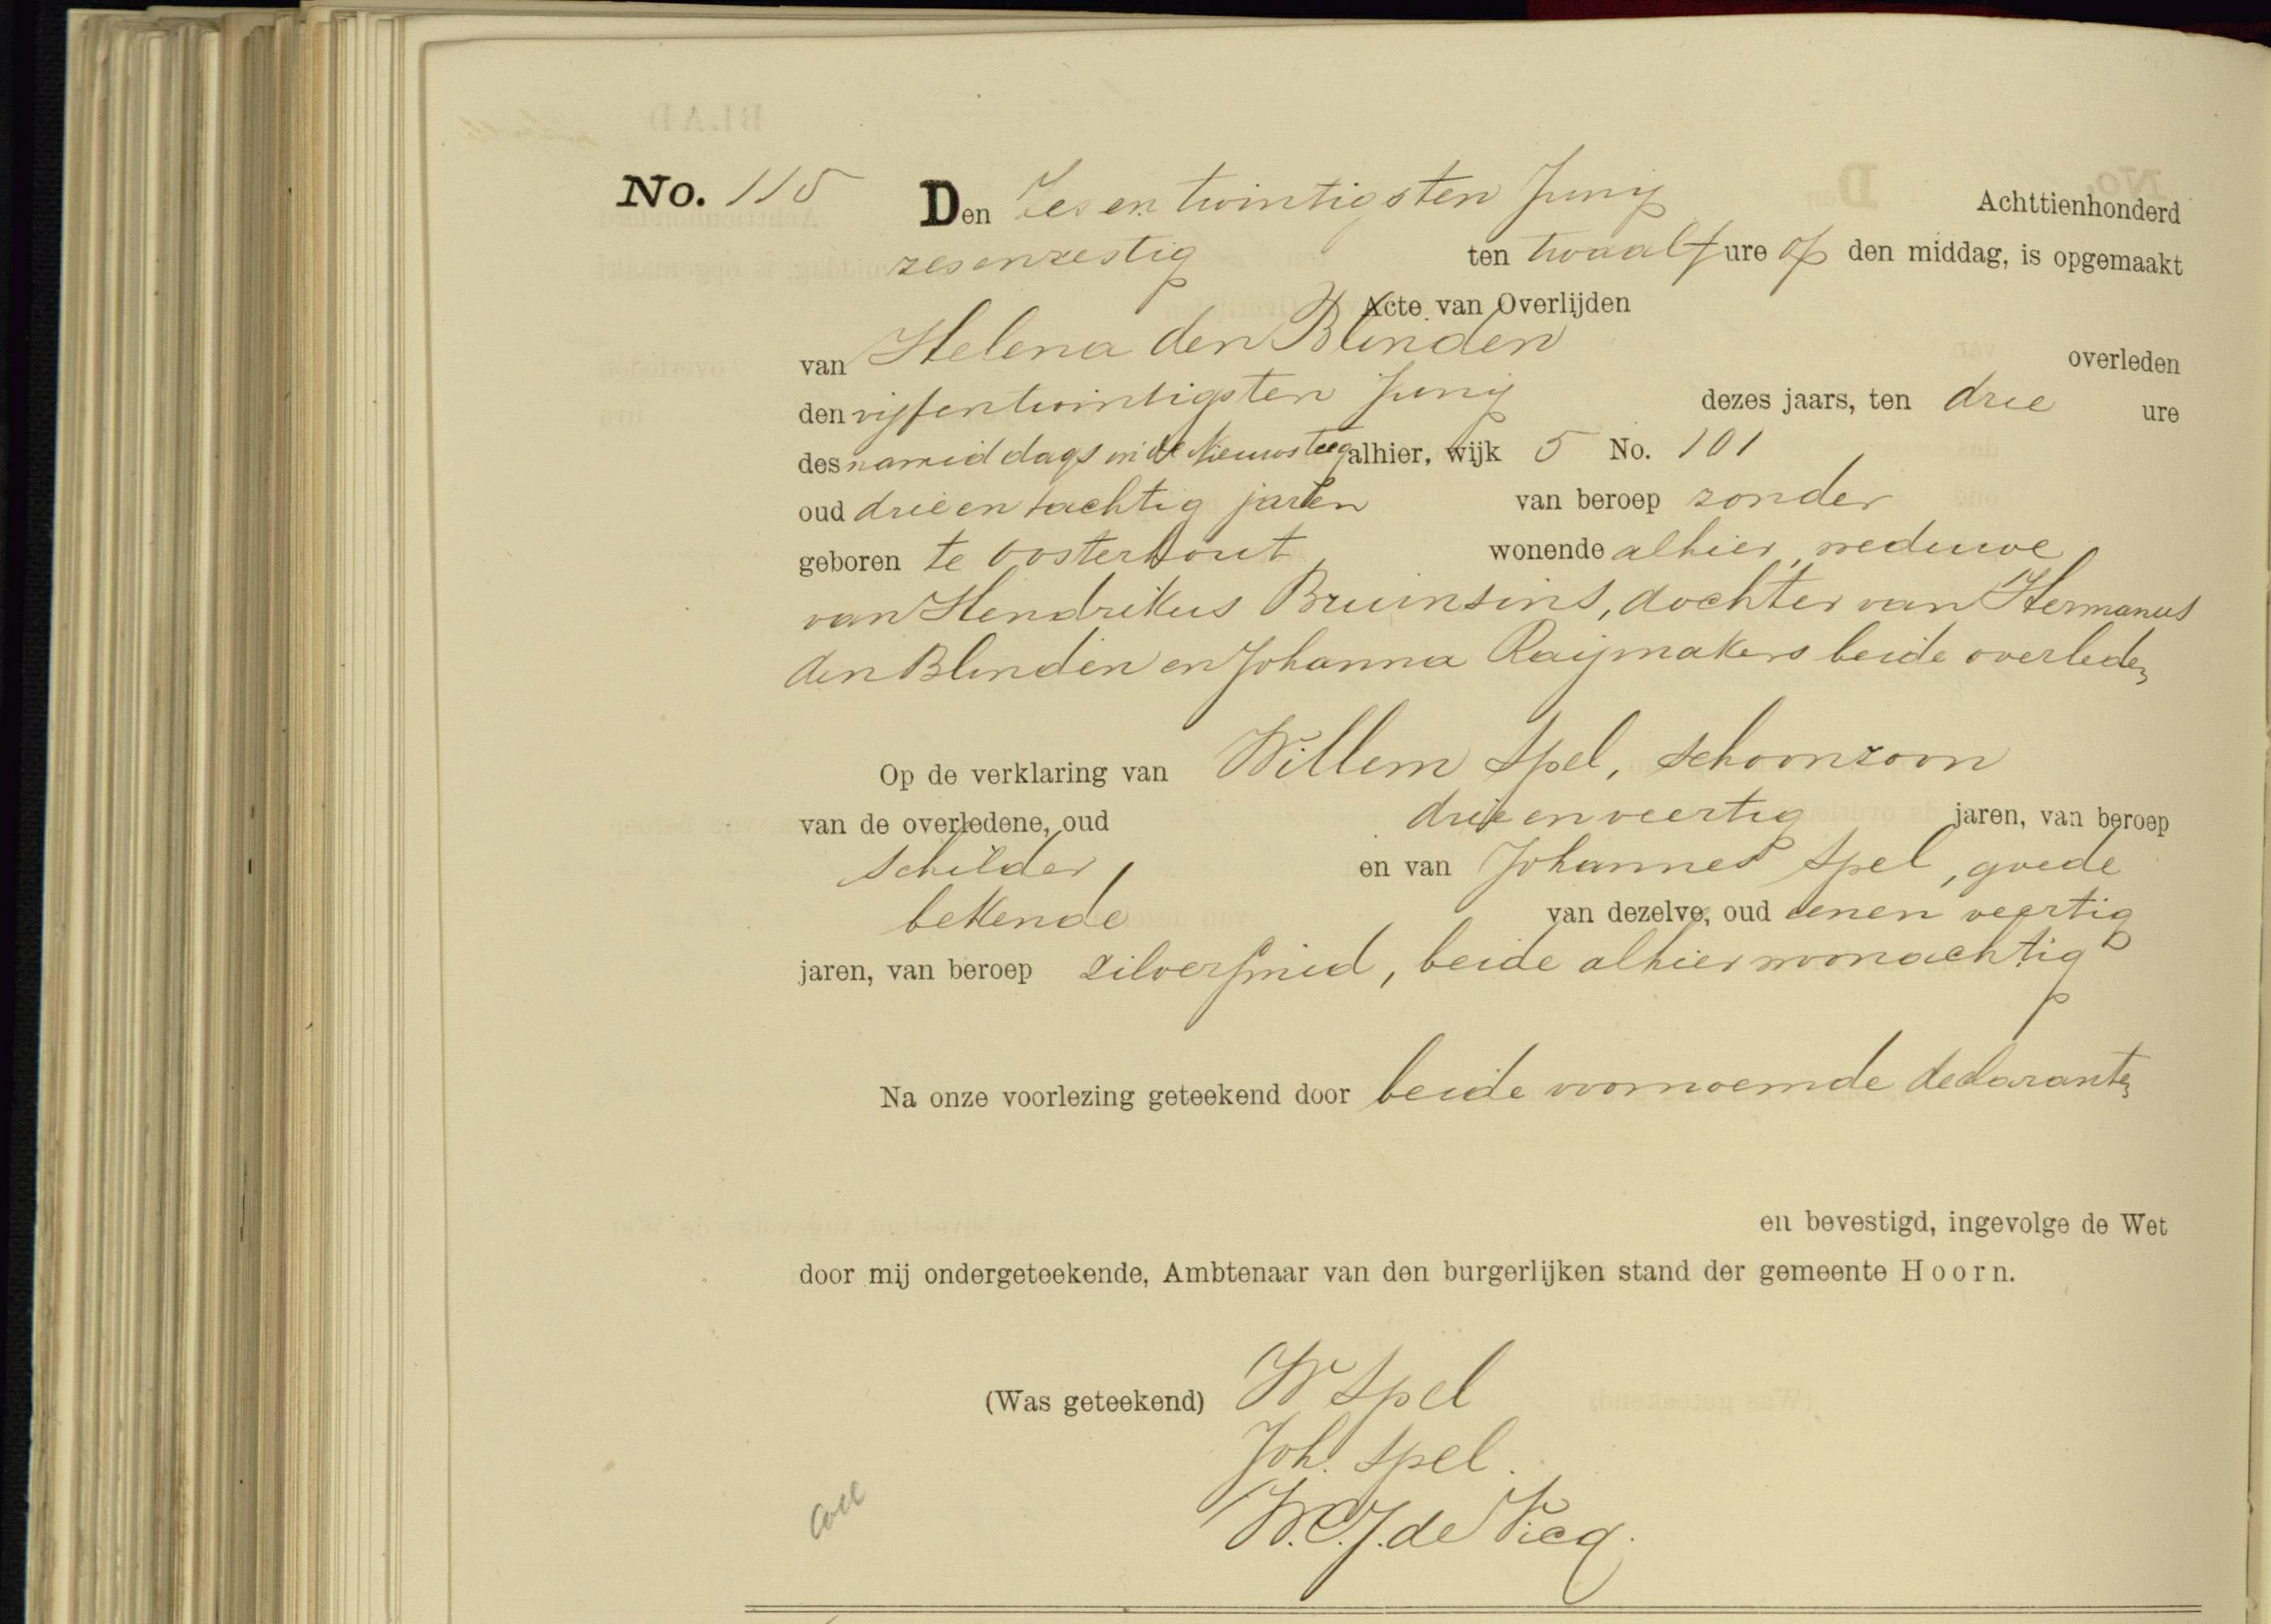 No. 115 Den Zes en twintigsten Junij Achttienhonderd
zesenzestig ten twaalf ure op den middag, is opgemaakt
Acte van Overlijden
van Helena den Blinden overleden
den vijfentwintigsten Junij dezes jaars, ten drie ure
des namiddags in de Nieuwsteeg alhier, wijk 5 No. 101
oud drie en tachtig jaren van beroep zonder
geboren te Oosterhout wonende alhier, weduwe
van Hendrikus Bruinsins, dochter van Hermanus
den Blinden en Johanna Raijmakers beide overleden
Op de verklaring van Willem Spel, schoonzoon
van de overledene, oud drie en veertig jaren, van beroep
schilder, en van Johannes Spel, goede
bekende van dezelve, oud eenen veertig
jaren, van beroep zilversmid, beide alhier woonachtig
Na onze voorlezing geteekend door beide voornoemde declaranten
en bevestigd, ingevolge de Wet
door mij ondergeteekende, Ambtenaar van den burgerlijken stand der gemeente Hoorn.
(Was geteekend) W Spel
Joh. Spel.
W.C.J. de Vicq.
Coll